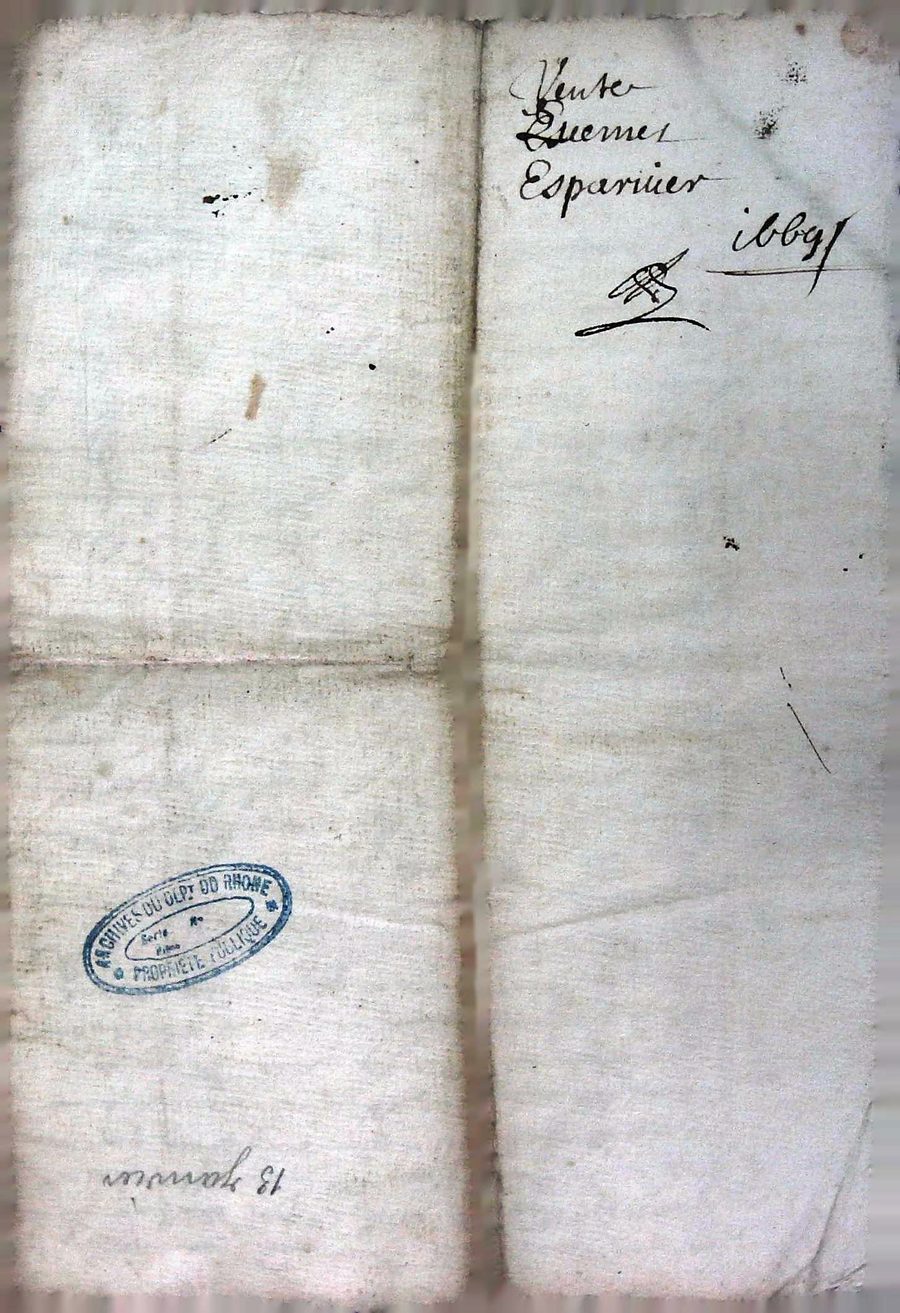 Vente
Esparviier
1669
ARCHIVES DU DEPT DU RHONE
Serie No
PROPRIETE PUBLIQUE
13 Janvier